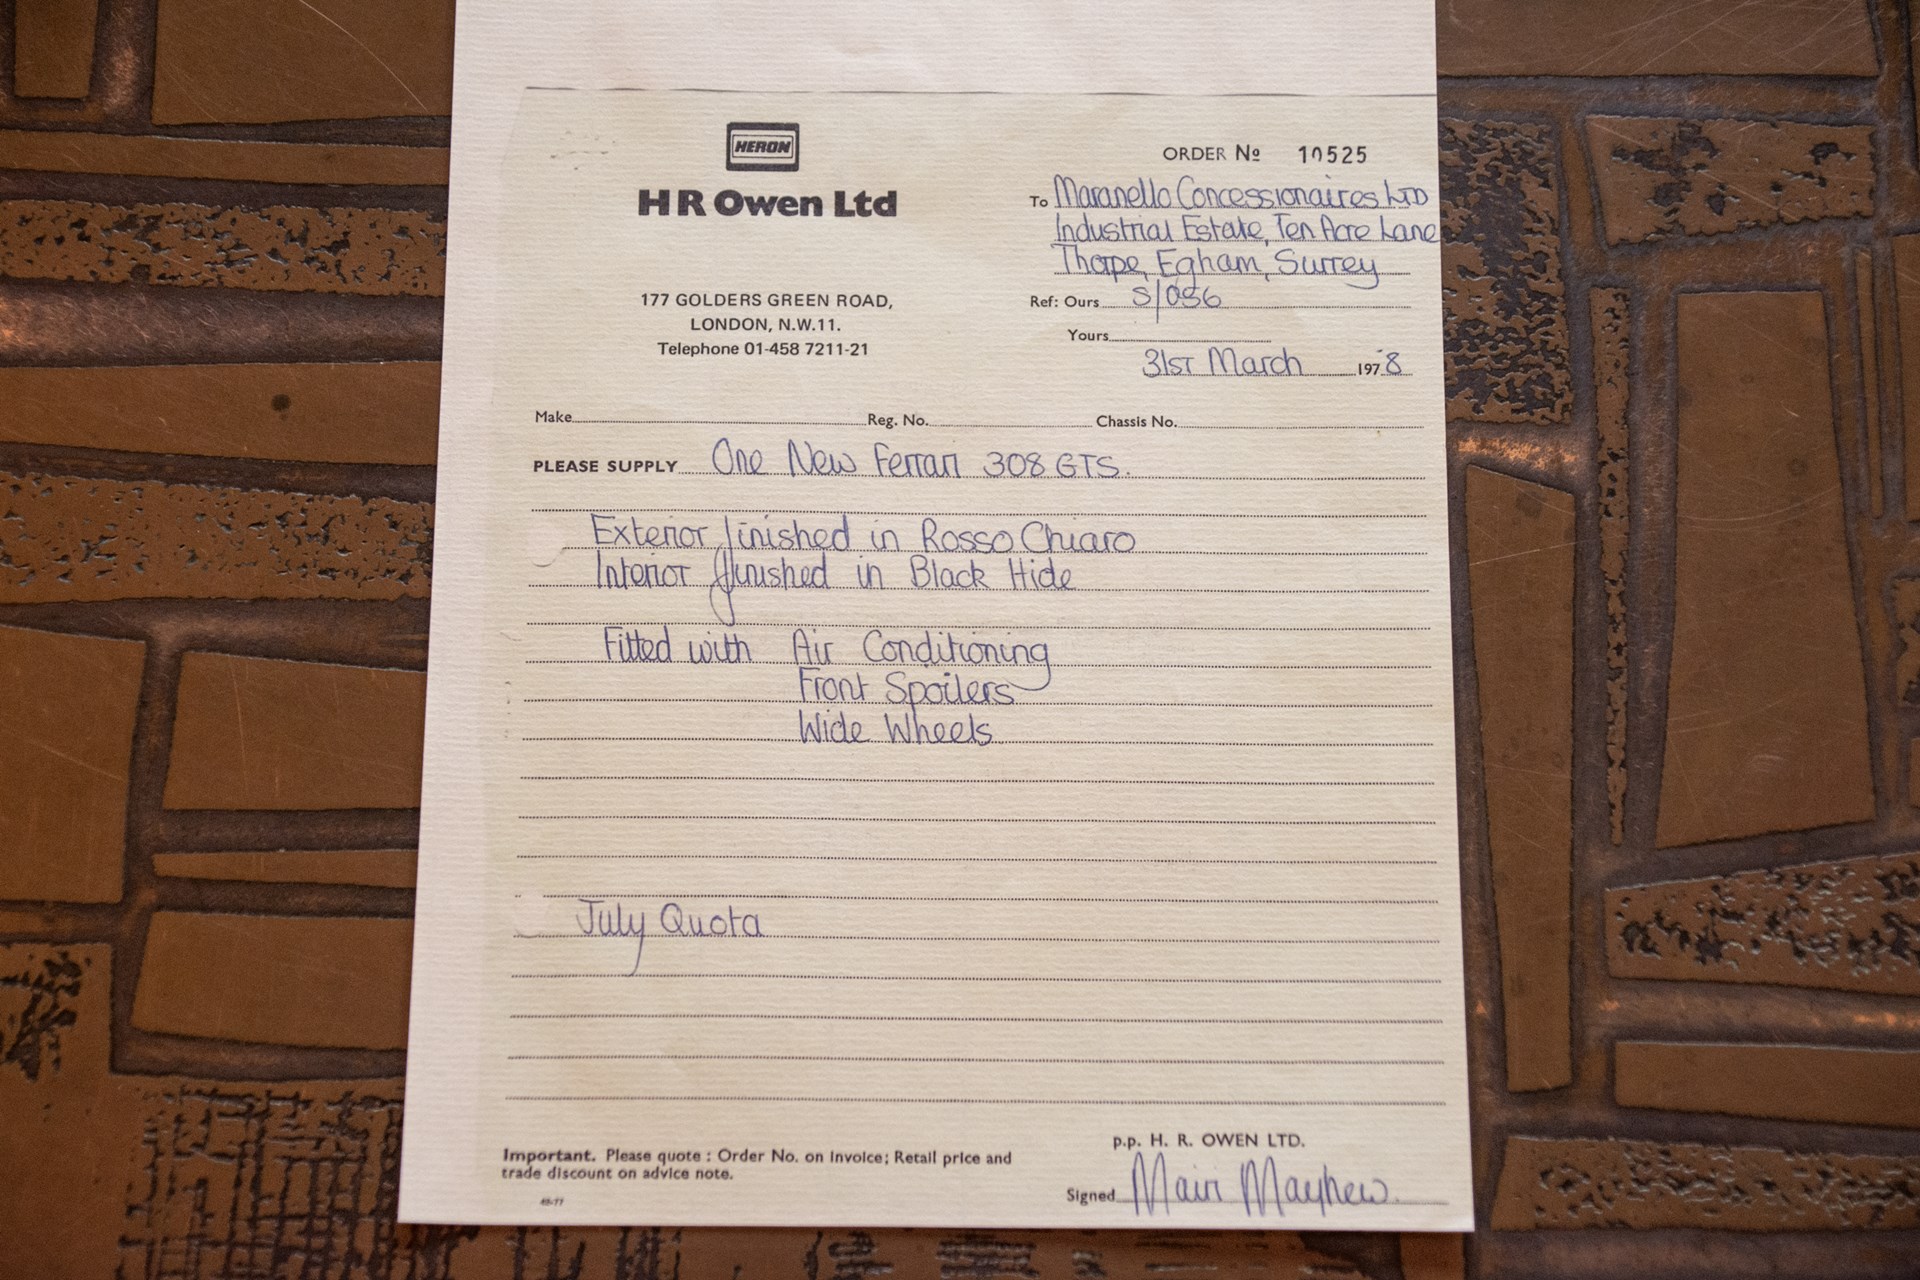 HERON
HR Owen Ltd
177 GOLDERS GREEN ROAD,
LONDON, N.W.11.
Telephone 01-458 7211-21
ORDER No 10525
To Maranello Concessionaires LTD
Industrial Estate, Ten Acre Lane
Thorpe, Egham, Surrey
Ref: Ours S/056
Yours
31ST March 1978
Make Reg. No. Chassis No.
PLEASE SUPPLY One New Ferrari 308 GTS.
Exterior finished in Rosso Chiaro
Interior finished in Black Hide
Fitted with Air Conditioning
Front Spoilers
Wide Wheels
July Quota
Important. Please quote : Order No. on invoice; Retail price and
trade discount on advice note.
p.p. H. R. OWEN LTD.
Signed Mairi Mayhew.